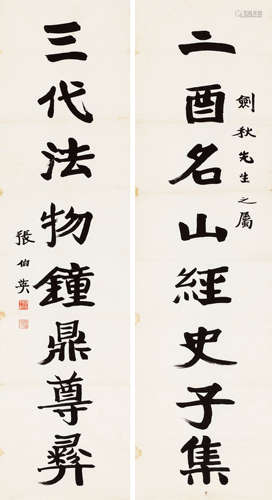 劍秋先生之屬
二酉名山經史子集
三代法物鐘鼎尊彞
張伯英